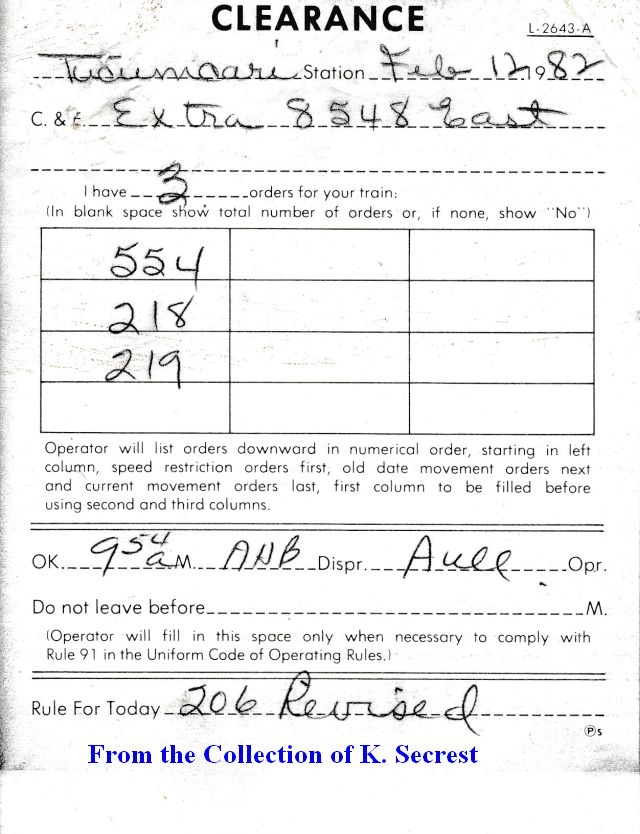 CLEARANCE
L-2643-A
Tucumcari Station Feb 12 1982
C. & E. Extra 8548 East
I have 3 orders for your train:
(In blank space show total number of orders or, if none, show "No")
554
218
219
Operator will list orders downward in numerical order, starting in left
column, speed restriction orders first, old date movement orders next
and current movement orders last, first column to be filled before
using second and third columns.
OK. 954 a M. ANB Dispr. Aull Opr.
Do not leave before M.
(Operator will fill in this space only when necessary to comply with
Rule 91 in the Uniform Code of Operating Rules.)
Rule For Today 206 Revised
Ⓟs
From the Collection of K. Secrest